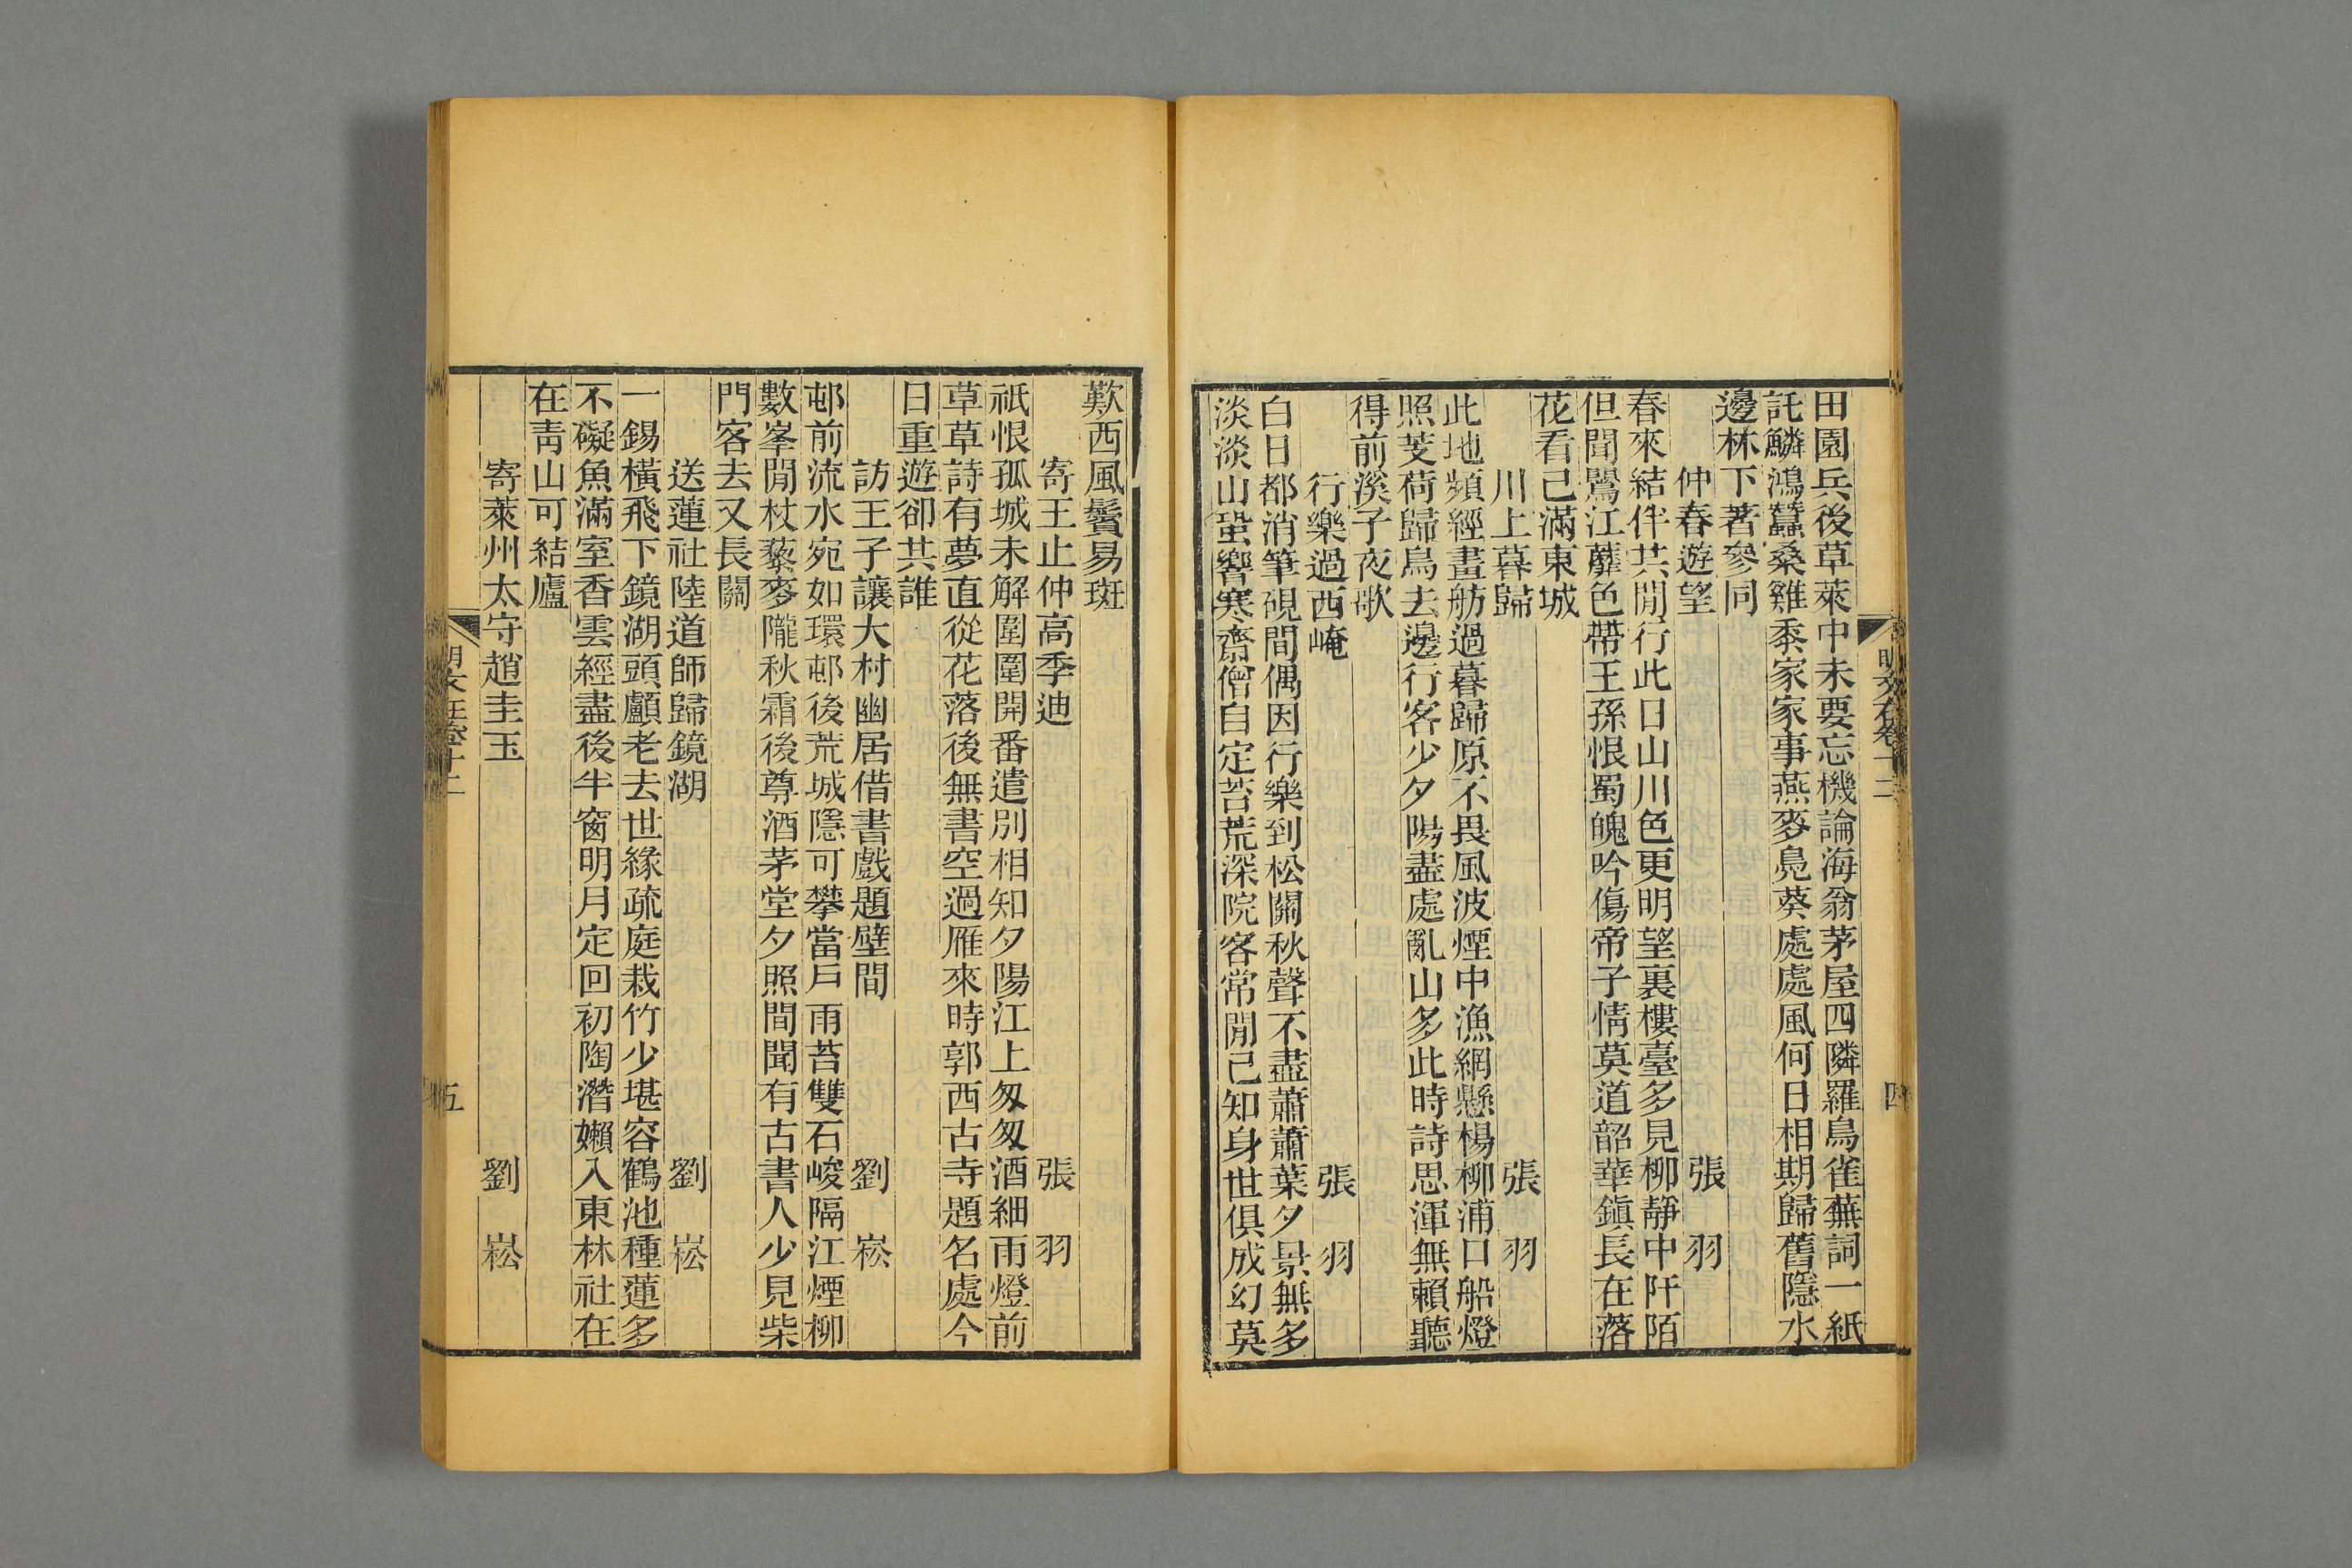 明文在卷十二
四
田園兵後草萊中未要忘機論海翁茅屋四隣羅鳥雀蕪詞一紙
託鱗鴻蠶桑雞黍家家事燕麥鳧葵處處風何日相期歸舊隱水
邊林下著參同
仲春遊望 張羽
春來結伴共閒行此日山川色更明望裏樓臺多見柳靜中阡陌
但聞鶯江蘺色帶王孫恨蜀魄吟傷帝子情莫道韶華鎭長在落
花看已滿東城
川上暮歸 張羽
此地頻經畫舫過暮歸原不畏風波煙中漁網懸楊柳浦口船燈
照芰荷歸鳥去邊行客少夕陽盡處亂山多此時詩思渾無賴聽
得前溪子夜歌
行樂過西崦 張羽
白日都消筆硯間偶因行樂到松關秋聲不盡蕭蕭葉夕景無多
淡淡山蛩響寒齋僧自定苔荒深院客常閒已知身世俱成幻莫
歎西風鬢易斑
寄王止仲高季迪 張羽
祇恨孤城未解圍圍開番遣別相知夕陽江上匆匆酒細雨燈前
草草詩有夢直從花落後無書空過雁來時郭西古寺題名處今
日重遊卻共誰
訪王子讓大村幽居借書戲題壁間 劉崧
邨前流水宛如環邨後荒城隱可攀當戶雨苔雙石峻隔江煙柳
數峯閒杖藜麥隴秋霜後尊酒茅堂夕照間聞有古書人少見柴
門客去又長關
送蓮社陸道師歸鏡湖 劉崧
一錫橫飛下鏡湖頭顱老去世緣疏庭栽竹少堪容鶴池種蓮多
不礙魚滿室香雲經盡後半窗明月定回初陶潛嬾入東林社在
在靑山可結廬
寄萊州太守趙圭玉 劉崧
明文在卷十二
五